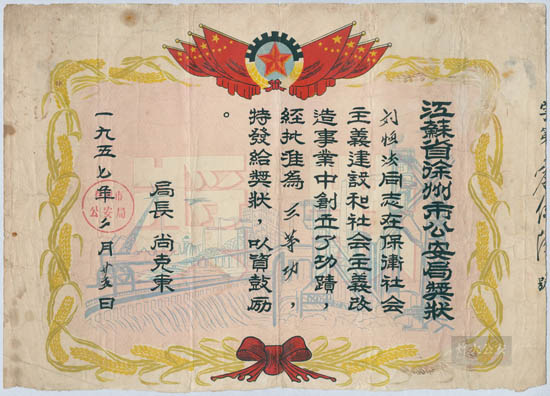 江蘇省徐州市公安局獎狀
同志在保衛社会
主義建設和社会主義改
造事業中創立了功蹟，
經批准為三等功，
特發給獎狀，以資鼓励
。
局長 尚克東
一九五七年二月十五日
市
公安局
字第 号